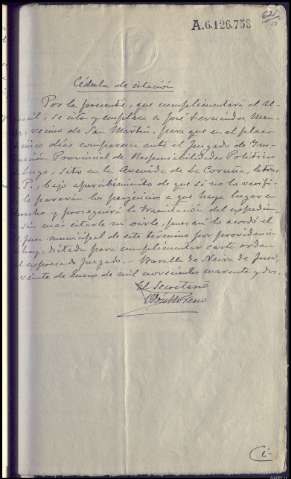 A.6.126.758
Cédula de citación
Por la presente, que cumplimentará el Al-
cil, se cita y emplaza a José Fernández Men
, vecino de San Martín, para que en el plazo
cinco días comparezca ante el Juzgado de Ins
ción Provincial de Responsabilidades Políticas
Lugo, sito en la Avenida de La Coruña, letra
P., bajo apercibimiento de que si no lo verifi
le pararán los perjuicios a que haya lugar en
recho y proseguirá la tramitación del expedien
sin más citarle ni oirle, pues así lo acordó el
Juez municipal de este término por providencia
hoy, dictada para cumplimentar carta orden
del expresado Juzgado. Baralla de Neira de Jusá,
veinte de Enero de mil novecientos cuarenta y dos.
El Secretario